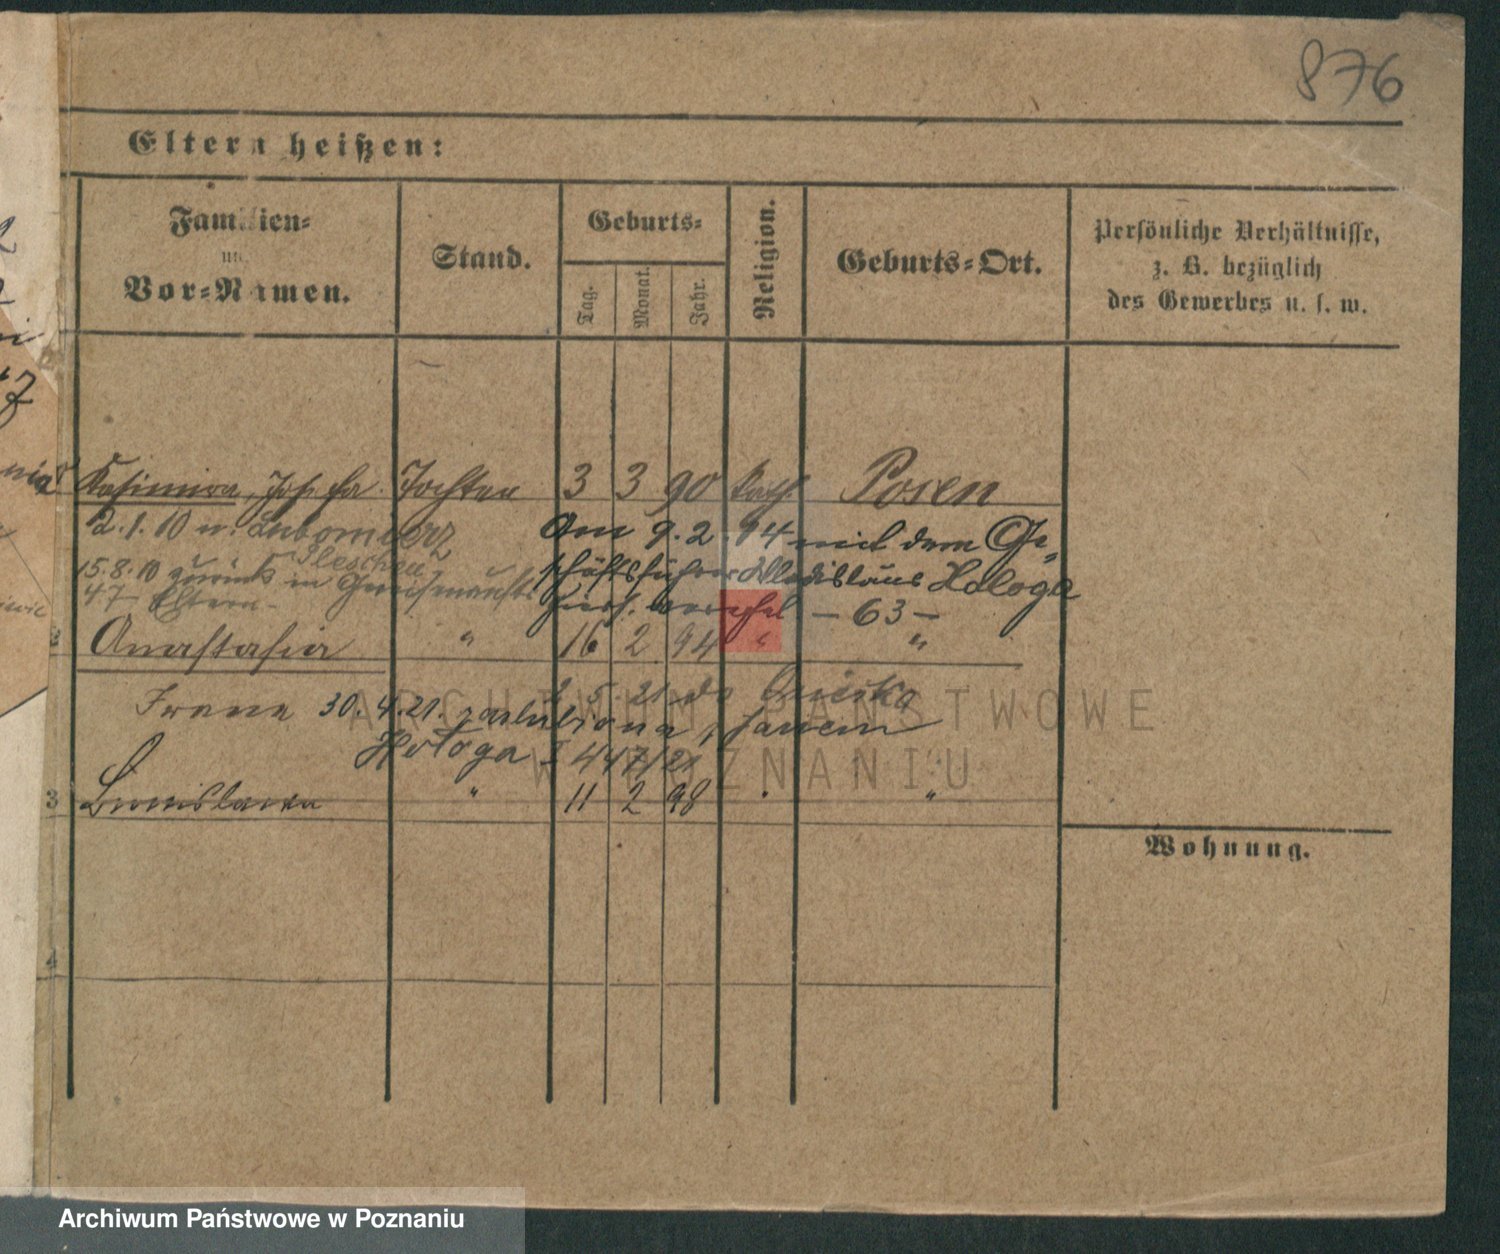 876
Eltern heißen:
Familien-
und
Vor-Namen.
Stand.
Geburts-
Tag.
Monat.
Jahr.
Religion.
Geburts-Ort.
Persönliche Verhältnisse,
z. B. bezüglich
des Gewerbes u. s. w.
Kasimira, Josepha Tochter 3 3 90 kath. Posen
2.1.10 n. Lubomierz
Pleschen
15.8.10 zurück in
47 Eltern.
Am 9.2.14 mit dem Ge-
schäftsführer Wladislaus Hologa
hier. verehel. – 63 –
2 Anastasia " 16 2 94 " "
2 5 21 do Gniezna
Irena 30.4.21 zaślubiona z panem
Hologa I 447/21
3 Bronislawa " 11 2 98 " "
4
Wohnung.
ARCHIWUM PAŃSTWOWE
W POZNANIU
Archiwum Państwowe w Poznaniu